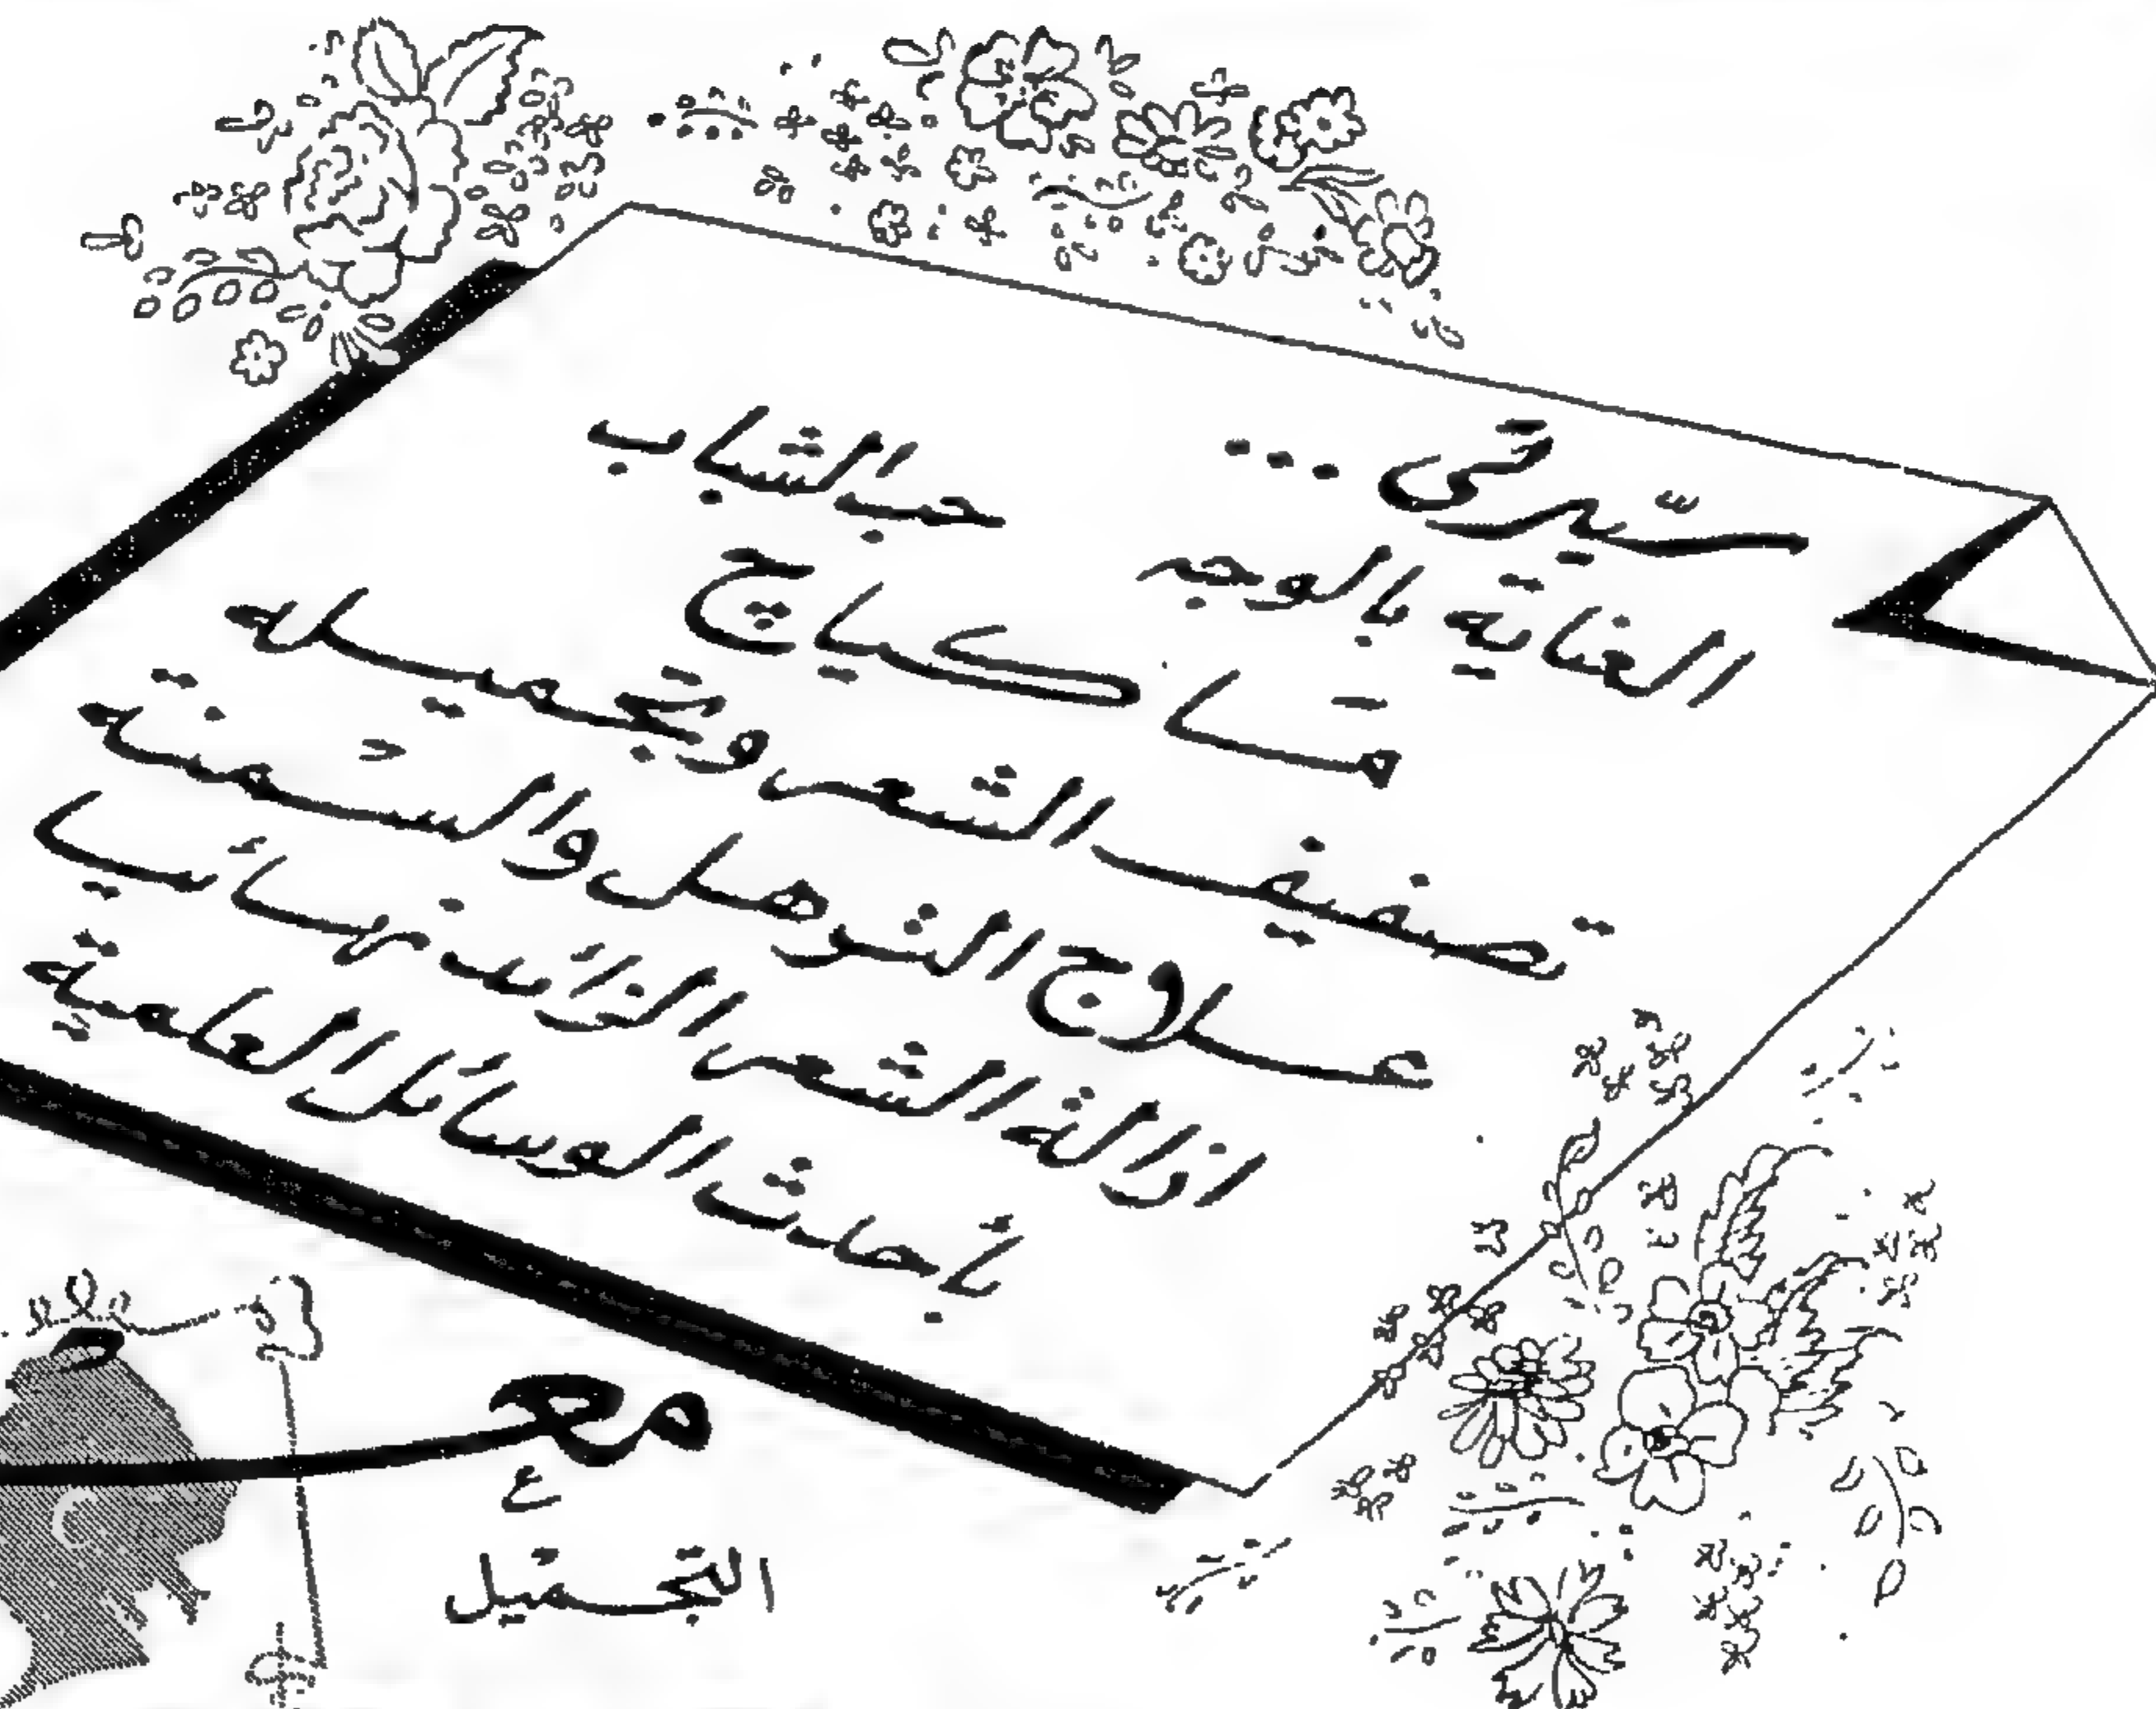 سيّدتى ...
العناية بالوجه
حب الشباب
مَاكياج
تصفيف الشعر وتجميله
علاج الترهل والسّمنة
ازالة الشعر الزائد نهائيا
بأحدث الوسائل العلمية
مع
التجميل